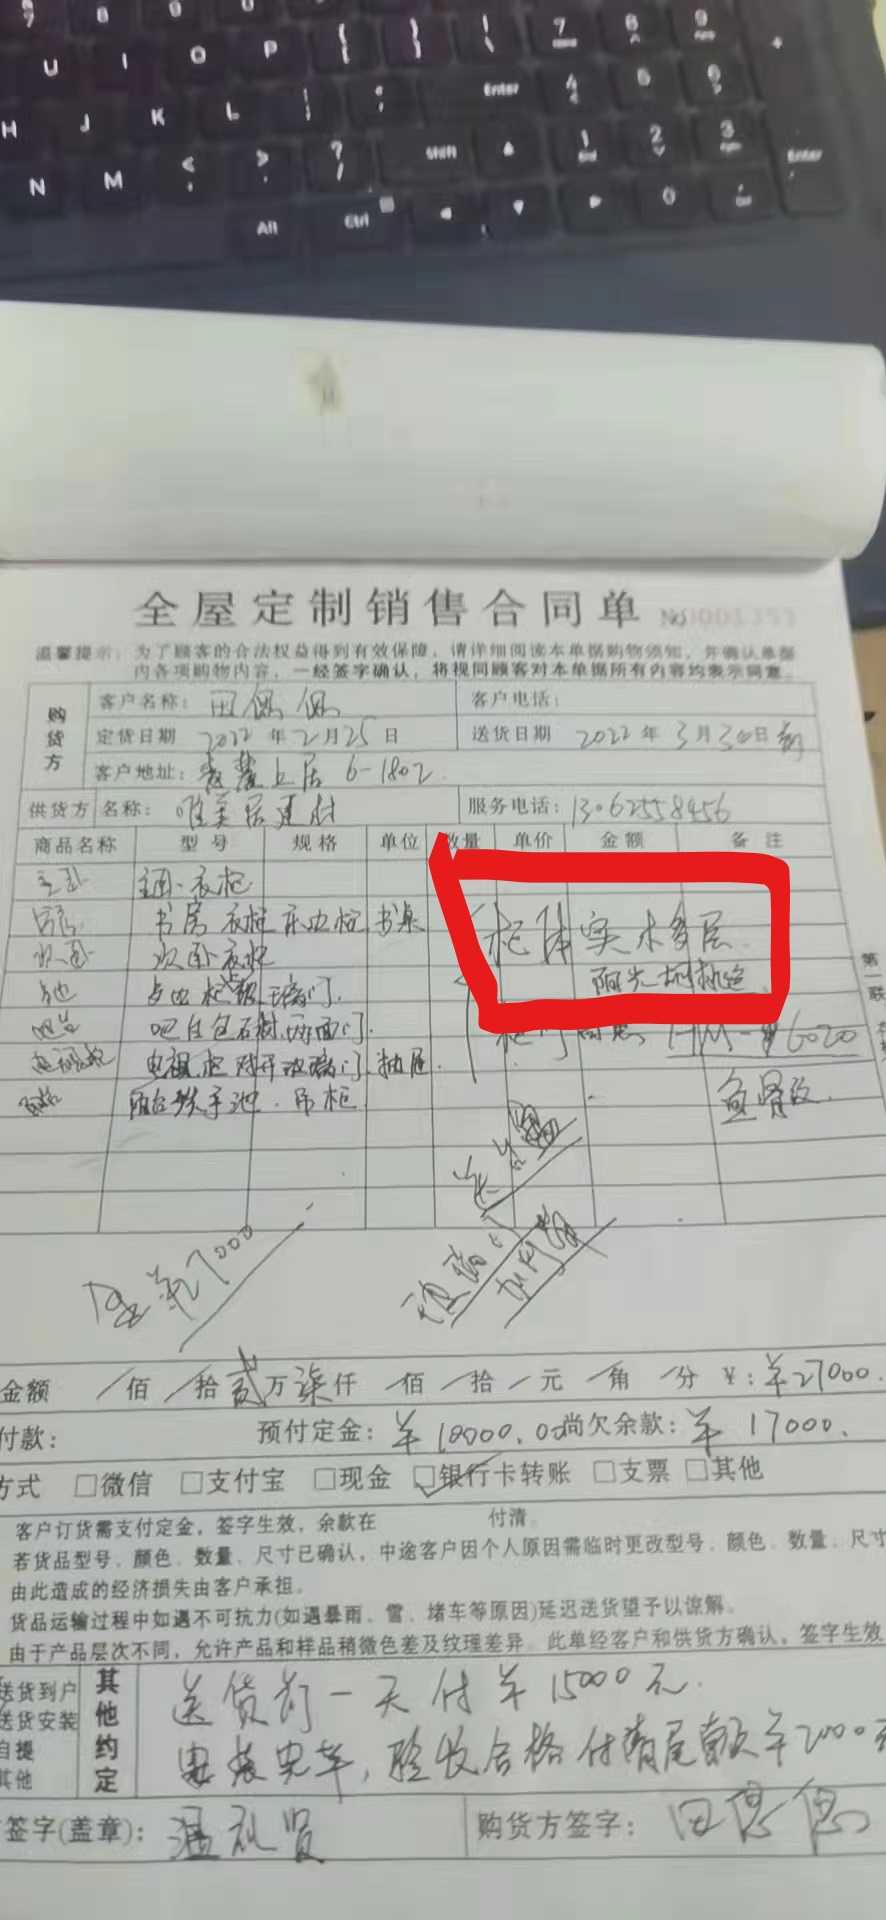 7 8 9
U I O P { } | 7 8 9 +
[ ] \
H J K L : ; Enter 4 5 6
N M < > ? Shift 1 2 3 Enter
, . /
Alt Ctrl 0
全屋定制销售合同单 No0001353
温馨提示:为了顾客的合法权益得到有效保障,请详细阅读本单据购物须知,并确认单据
内各项购物内容,一经签字确认,将视同顾客对本单据所有内容均表示同意。
购货方
客户名称: 田 客户电话:
定货日期 2022年2月25日 送货日期 2022年3月30日前
客户地址: 上居 6-1802
供货方 名称: 唯美居建材 服务电话: 13062558456
商品名称 型号 规格 单位 数量 单价 金额 备注
主卧 主卧衣柜
书房 书房衣柜 床边柜 书桌 柜体实木多层
次卧 次卧衣柜
阳光
玻璃门
吧台 吧台包石 两面门 柜门 HM- 6020
电视柜 电视柜 对开玻璃门 抽屉
阳台 阳台洗手池 吊柜 鱼骨纹
第一联
定 7000
玻璃门
金额 / 佰 / 拾 贰 万 柒 仟 佰 拾 元 角 分 ¥: ¥27000.
付款: 预付定金: ¥10000.00 尚欠余款: ¥17000.
方式 □微信 □支付宝 □现金 ☑银行卡转账 □支票 □其他
客户订货需支付定金,签字生效,余款在 付清。
若货品型号、颜色、数量、尺寸已确认,中途客户因个人原因需临时更改型号、颜色、数量、尺寸
由此造成的经济损失由客户承担。
货品运输过程中如遇不可抗力(如遇暴雨、雪、堵车等原因)延迟送货望予以谅解。
由于产品层次不同,允许产品和样品稍微色差及纹理差异。此单经客户和供货方确认,签字生效
送货到户
送货安装
自提
其他
其他约定
送货前一天付¥15000元.
安装完毕,验收合格付清尾款¥2000元
签字(盖章): 温 贤 购货方签字: 田